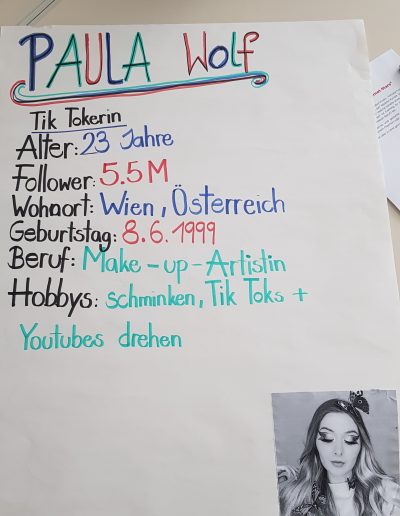 PAULA Wolf
Tik Tokerin
Alter: 23 Jahre
Follower: 5.5 M
Wohnort: Wien, Österreich
Geburtstag: 8.6.1999
Beruf: Make-up-Artistin
Hobbys: schminken, Tik Toks +
Youtubes drehen